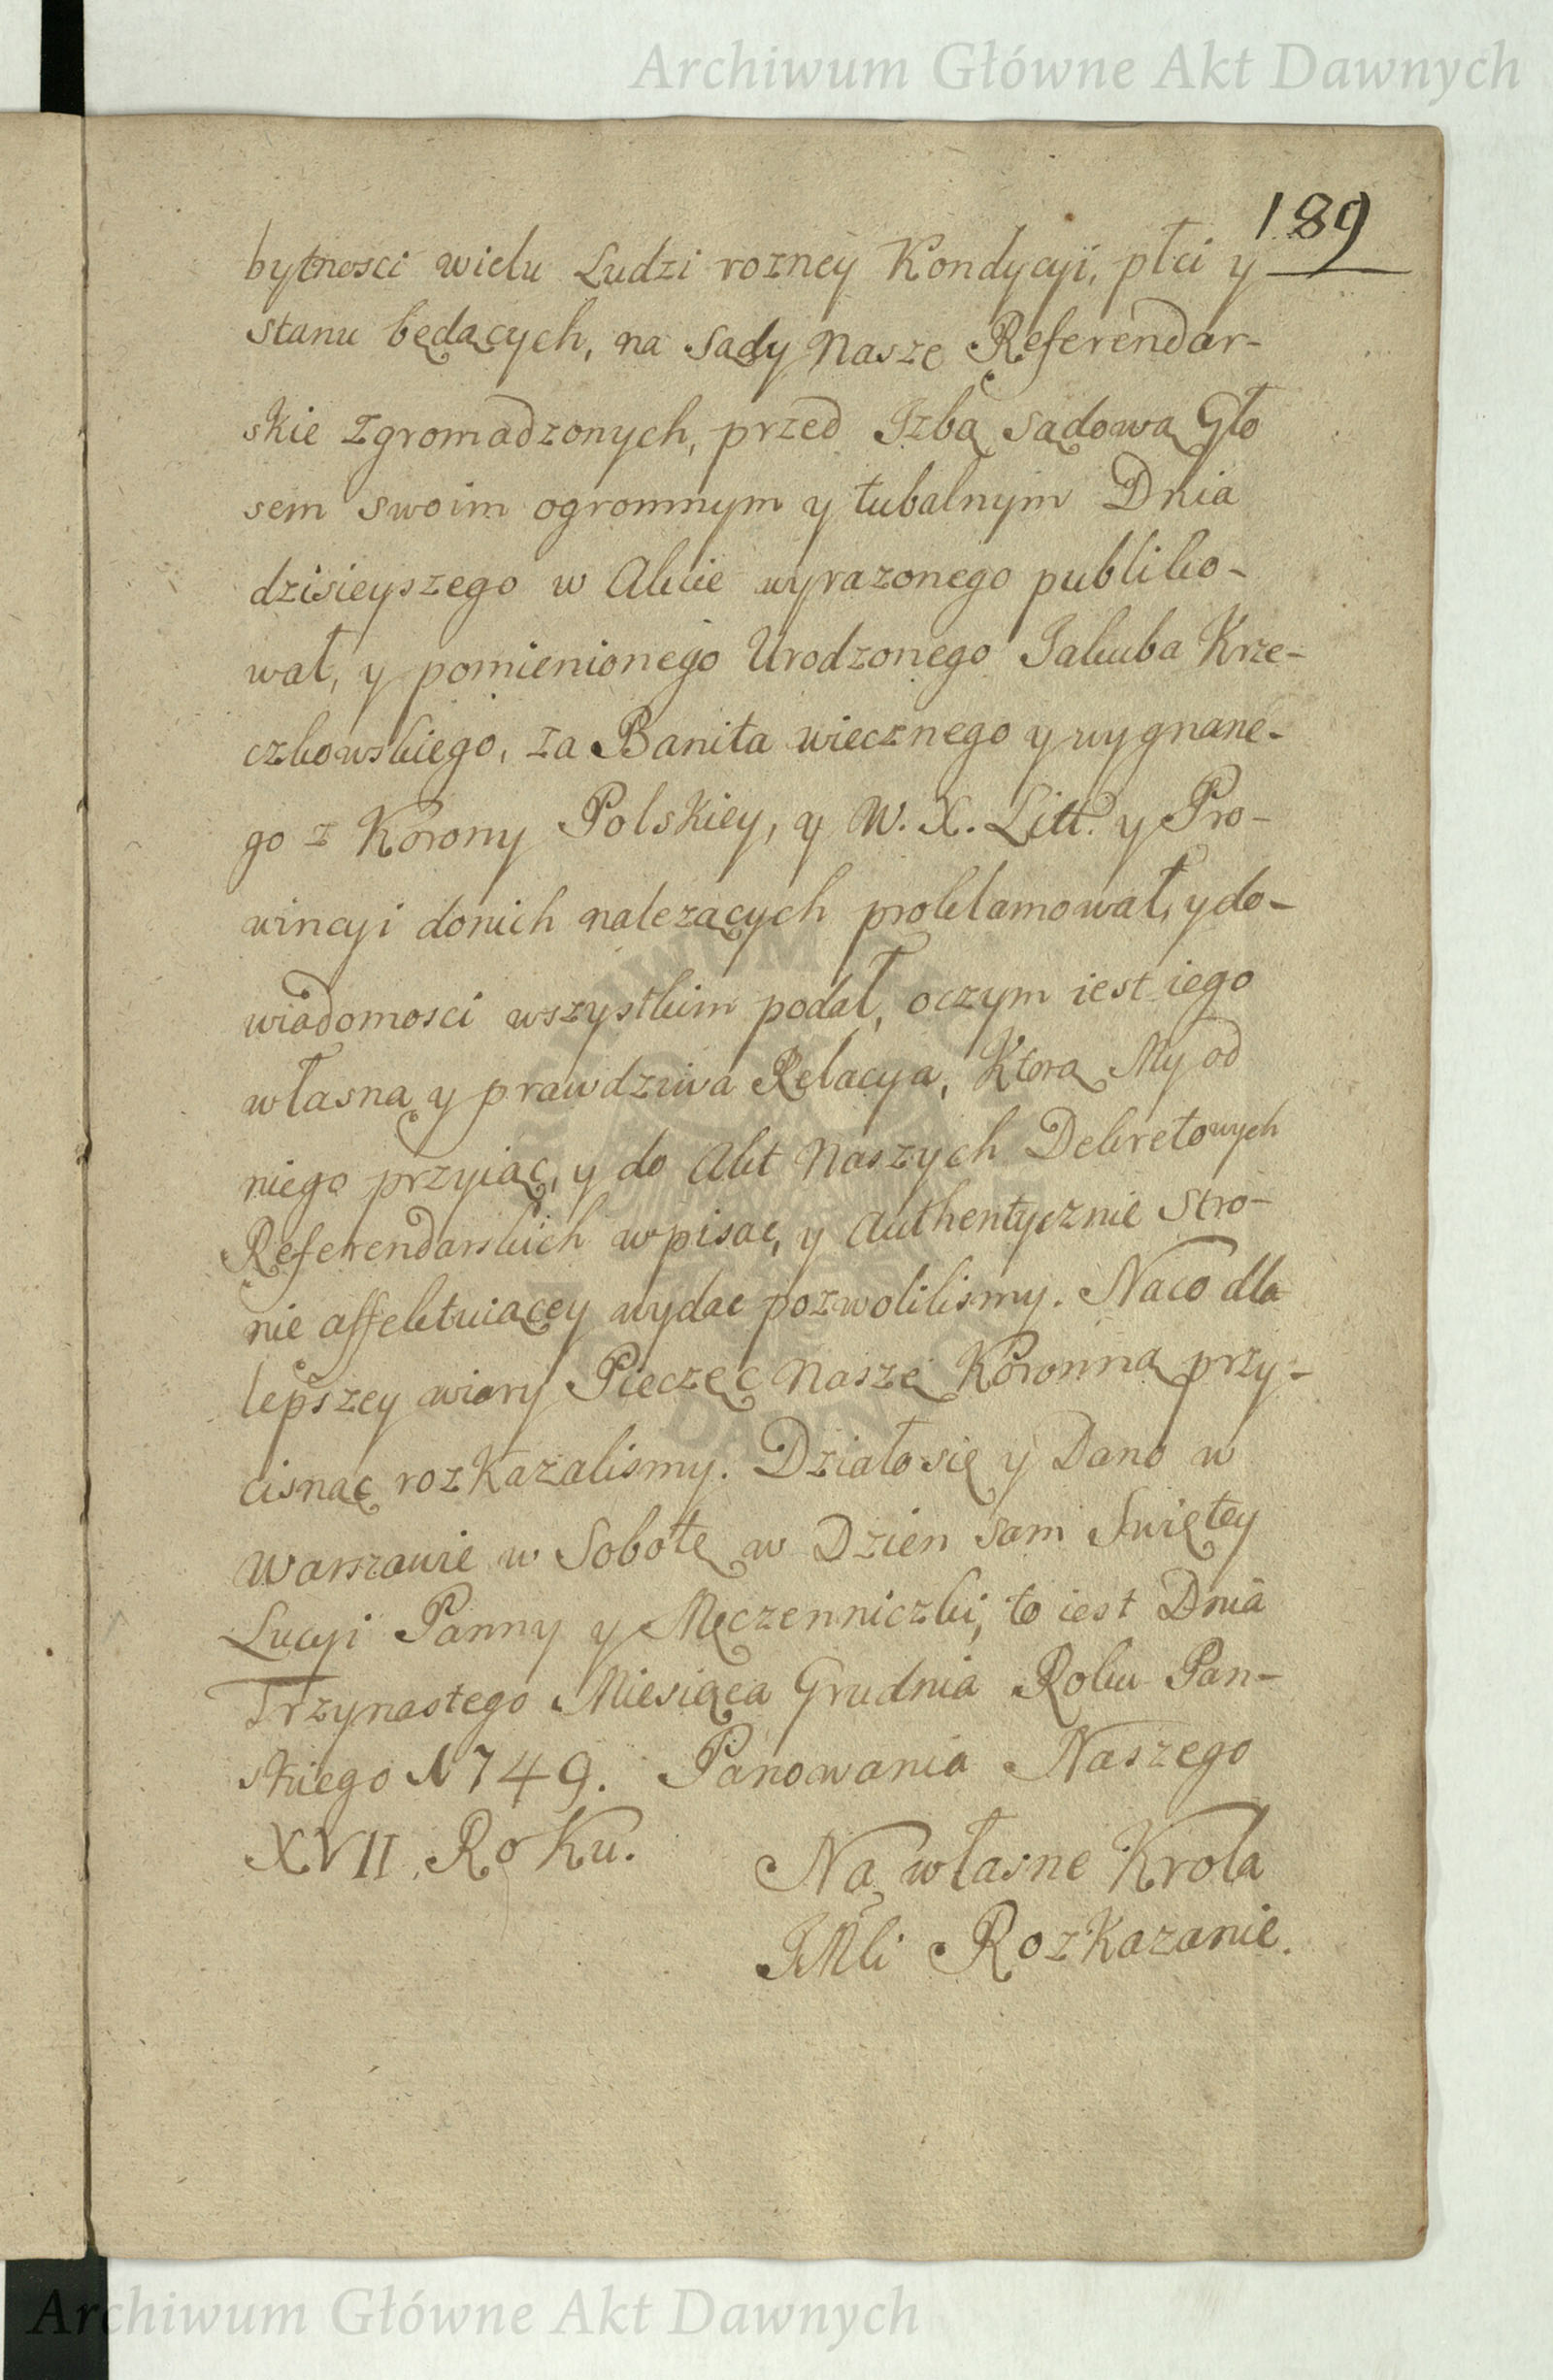 Archiwum Główne Akt Dawnych
189
bytnosci wielu Ludzi rozney Kondycyi, płci y
stanu będących, na Sądy Nasze Referendar-
skie zgromadzonych, przed Izbą Sądową Gło
sem swoim ogromnym y tubalnym Dnia
dzisieyszego w Akcie wyrazonego publiko-
wał, y pomienionego Urodzonego Jakuba Krze-
czkowskiego, za Banita wiecznego y wygnane-
go z Korony Polskiey, y W. X. Litt. y Pro-
wincyi donich nalezących proklamował, ydo-
wiadomosci wszystkim podał, oczym iest iego
własna y prawdziwa Relacya, Ktorą My od
niego przyiąć, y do Akt Naszych Dekretowych
Referendarskich wpisac, y Authentycznie Stro-
nie affektuiącey wydac pozwolilismy. Naco dla
lepszey wiary Pieczęc Naszę Koronną przy-
cisnąc rozkazalismy. Działosię y Dano w
Warszawie w Sobotę w Dzien sam Swiętey
Lucyi Panny y Męczenniczki, to iest Dnia
Trzynastego Miesiąca Grudnia Roku Pan-
skiego 1749. Panowania Naszego
XVII Roku.
Na własne Krola
JMci Rozkazanie.
Archiwum Główne Akt Dawnych